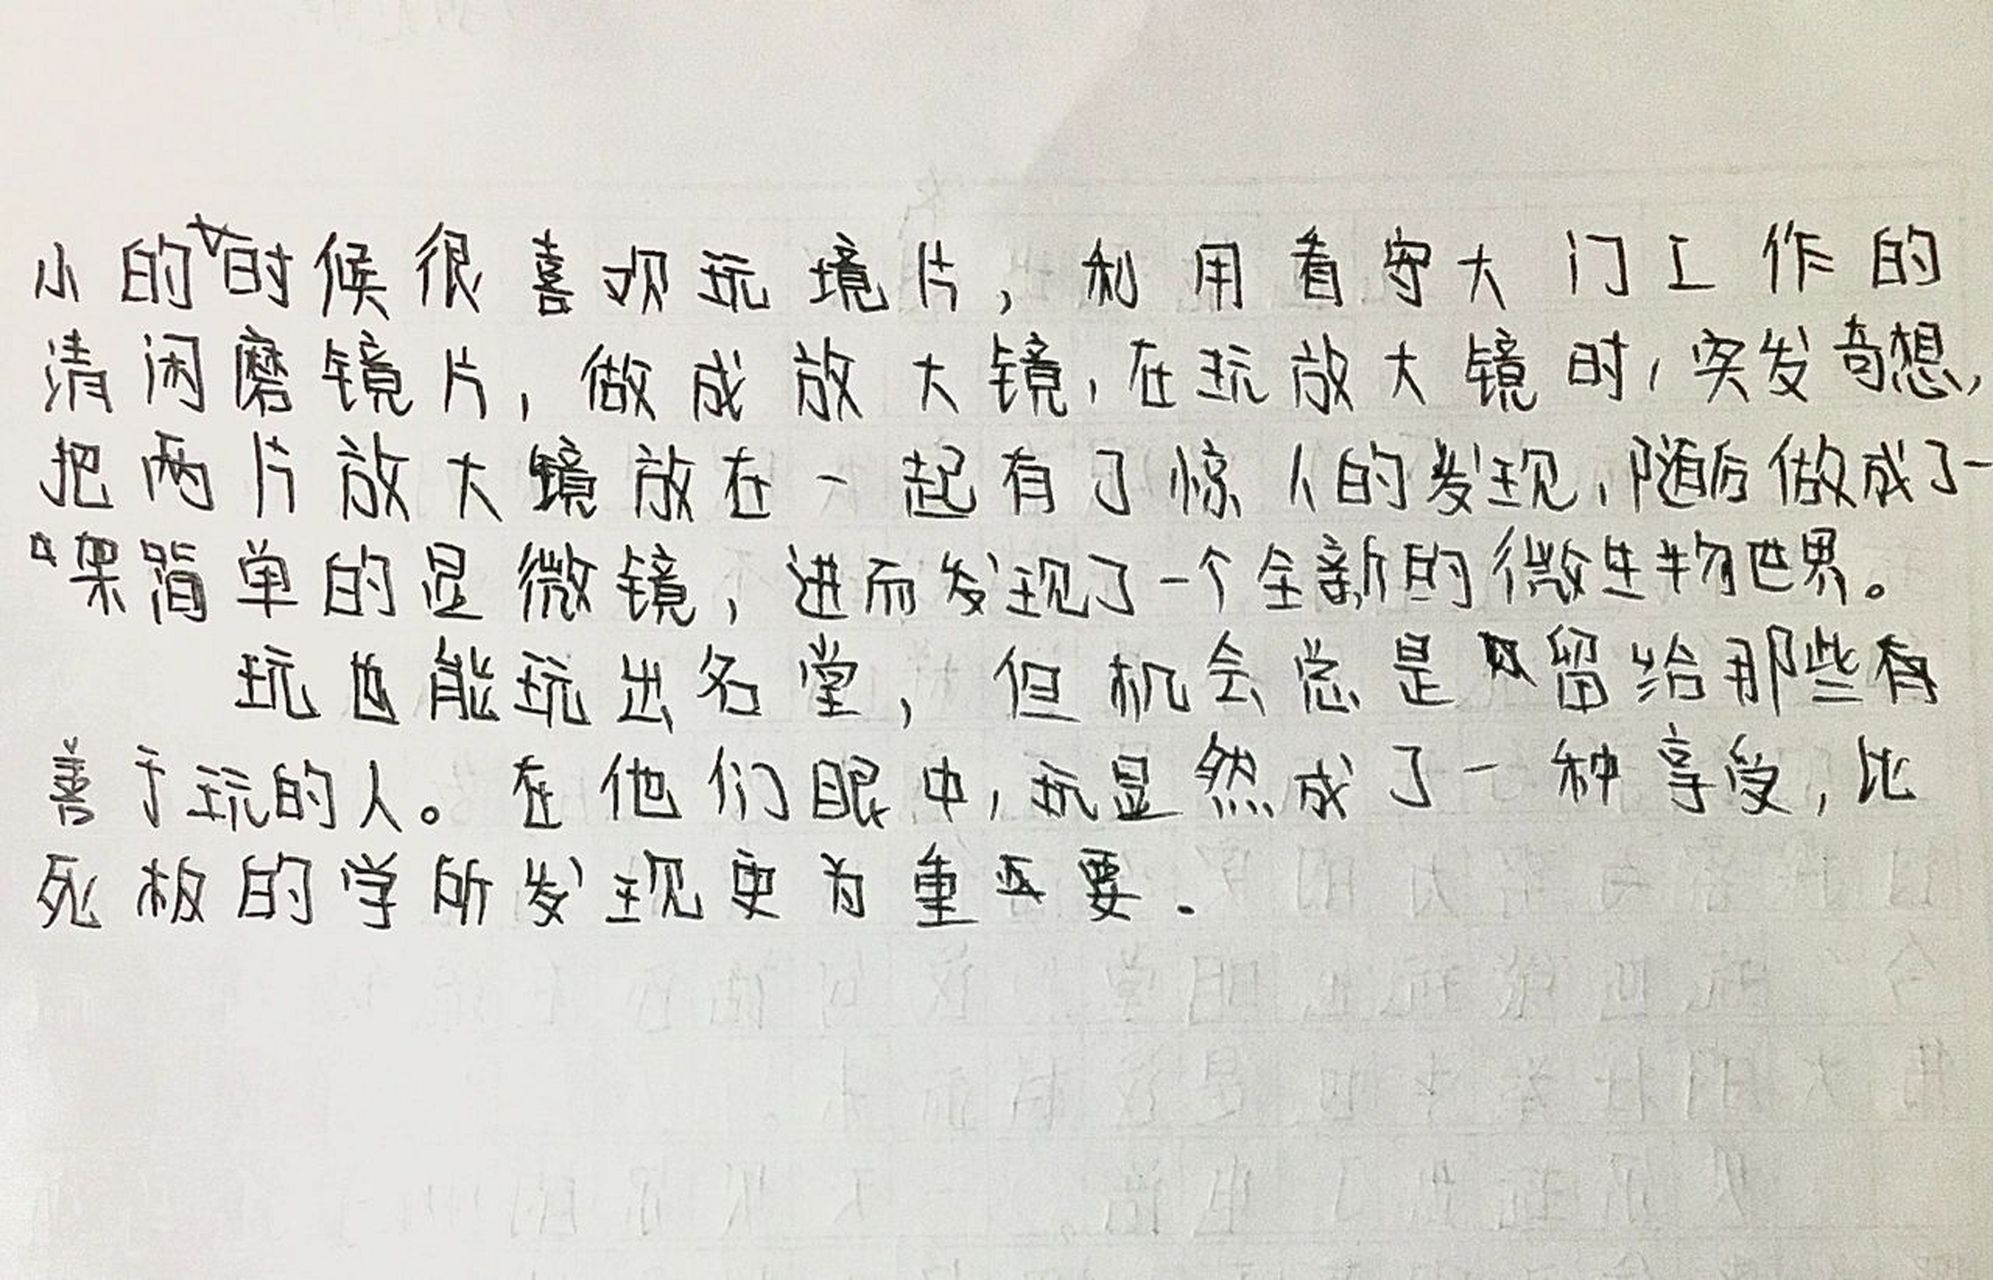 小的时候很喜欢玩境片，利用看守大门工作的
清闲磨镜片，做成放大镜，在玩放大镜时，突发奇想，
把两片放大镜放在一起有了惊人的发现，随后做成了一
架简单的显微镜，进而发现了一个全新的微生物世界。
玩也能玩出名堂，但机会总是留给那些有
善于玩的人。在他们眼中，玩显然成了一种享受，比
死板的学所发现更为重要.